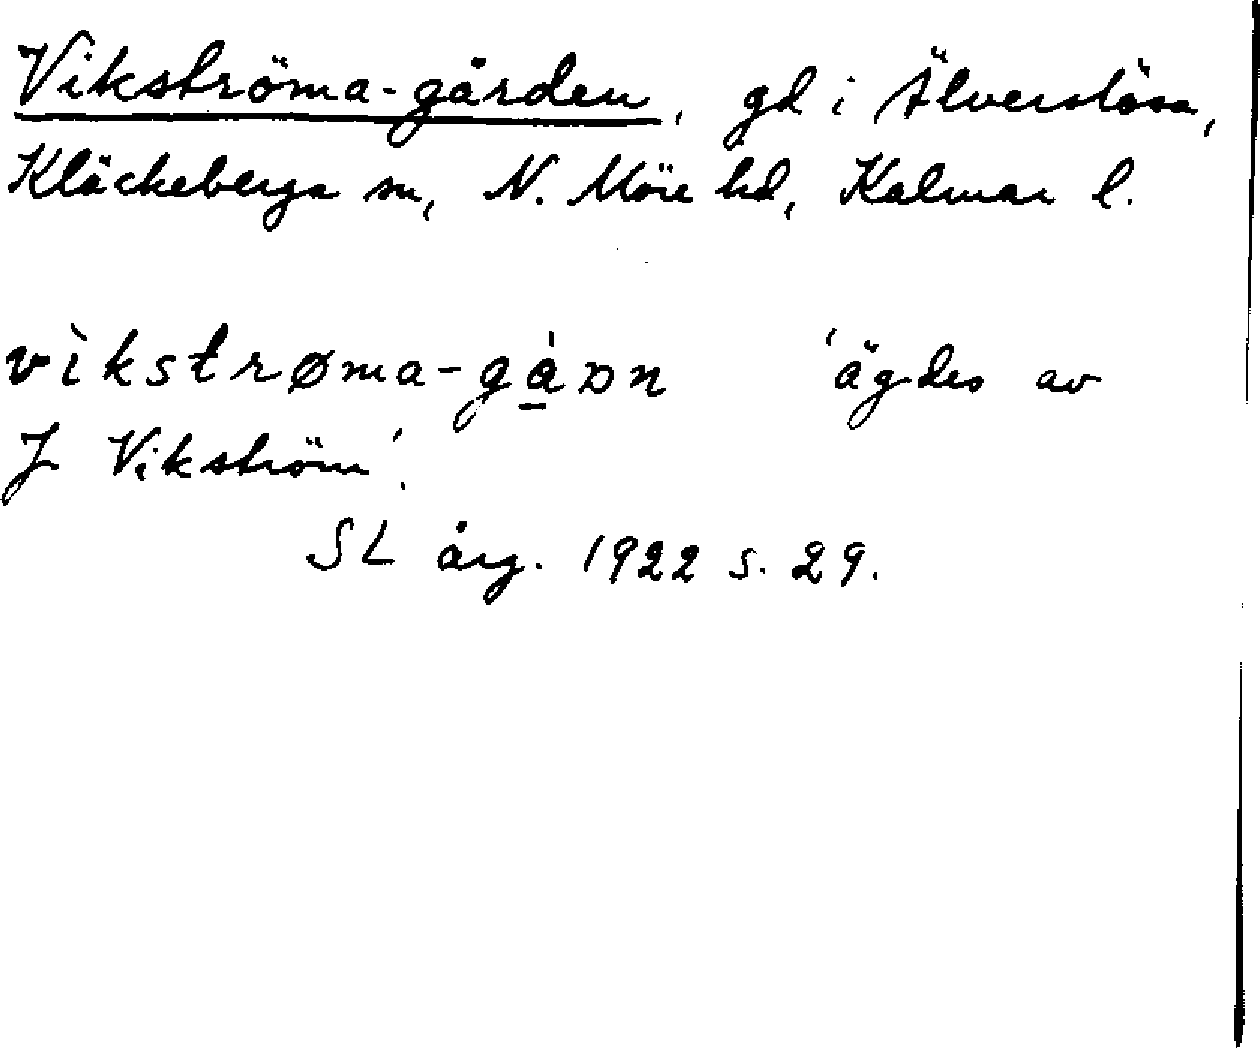 Vikströma-gården, gd i Älverslösa,
Kläckeberga sn, N. Möre hd, Kalmar l.
vìkstrøma-gá̱ᴅn 'ägdes av
J Vikström'.
SL årg. 1922 s. 29.